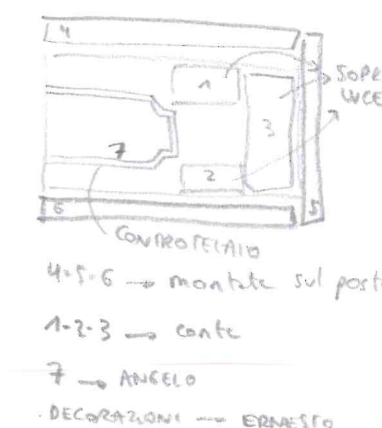 4
1
SOPR
LUCE
3
7
2
6
5
CONTROTELAIO
4-5-6 → montate sul post
1-2-3 →
7 → ANGELO
DECORAZIONI — ERNESTO